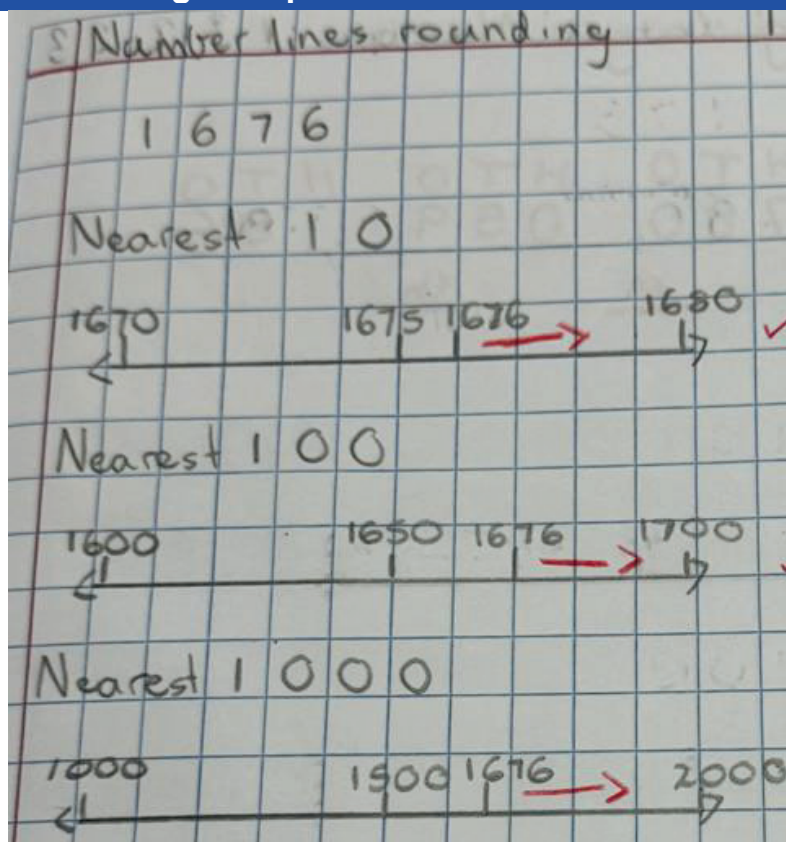 Number lines rounding
1676
Nearest 10
1670 1675 1676 1680
Nearest 100
1600 1650 1676 1700
Nearest 1000
1000 1500 1676 2000